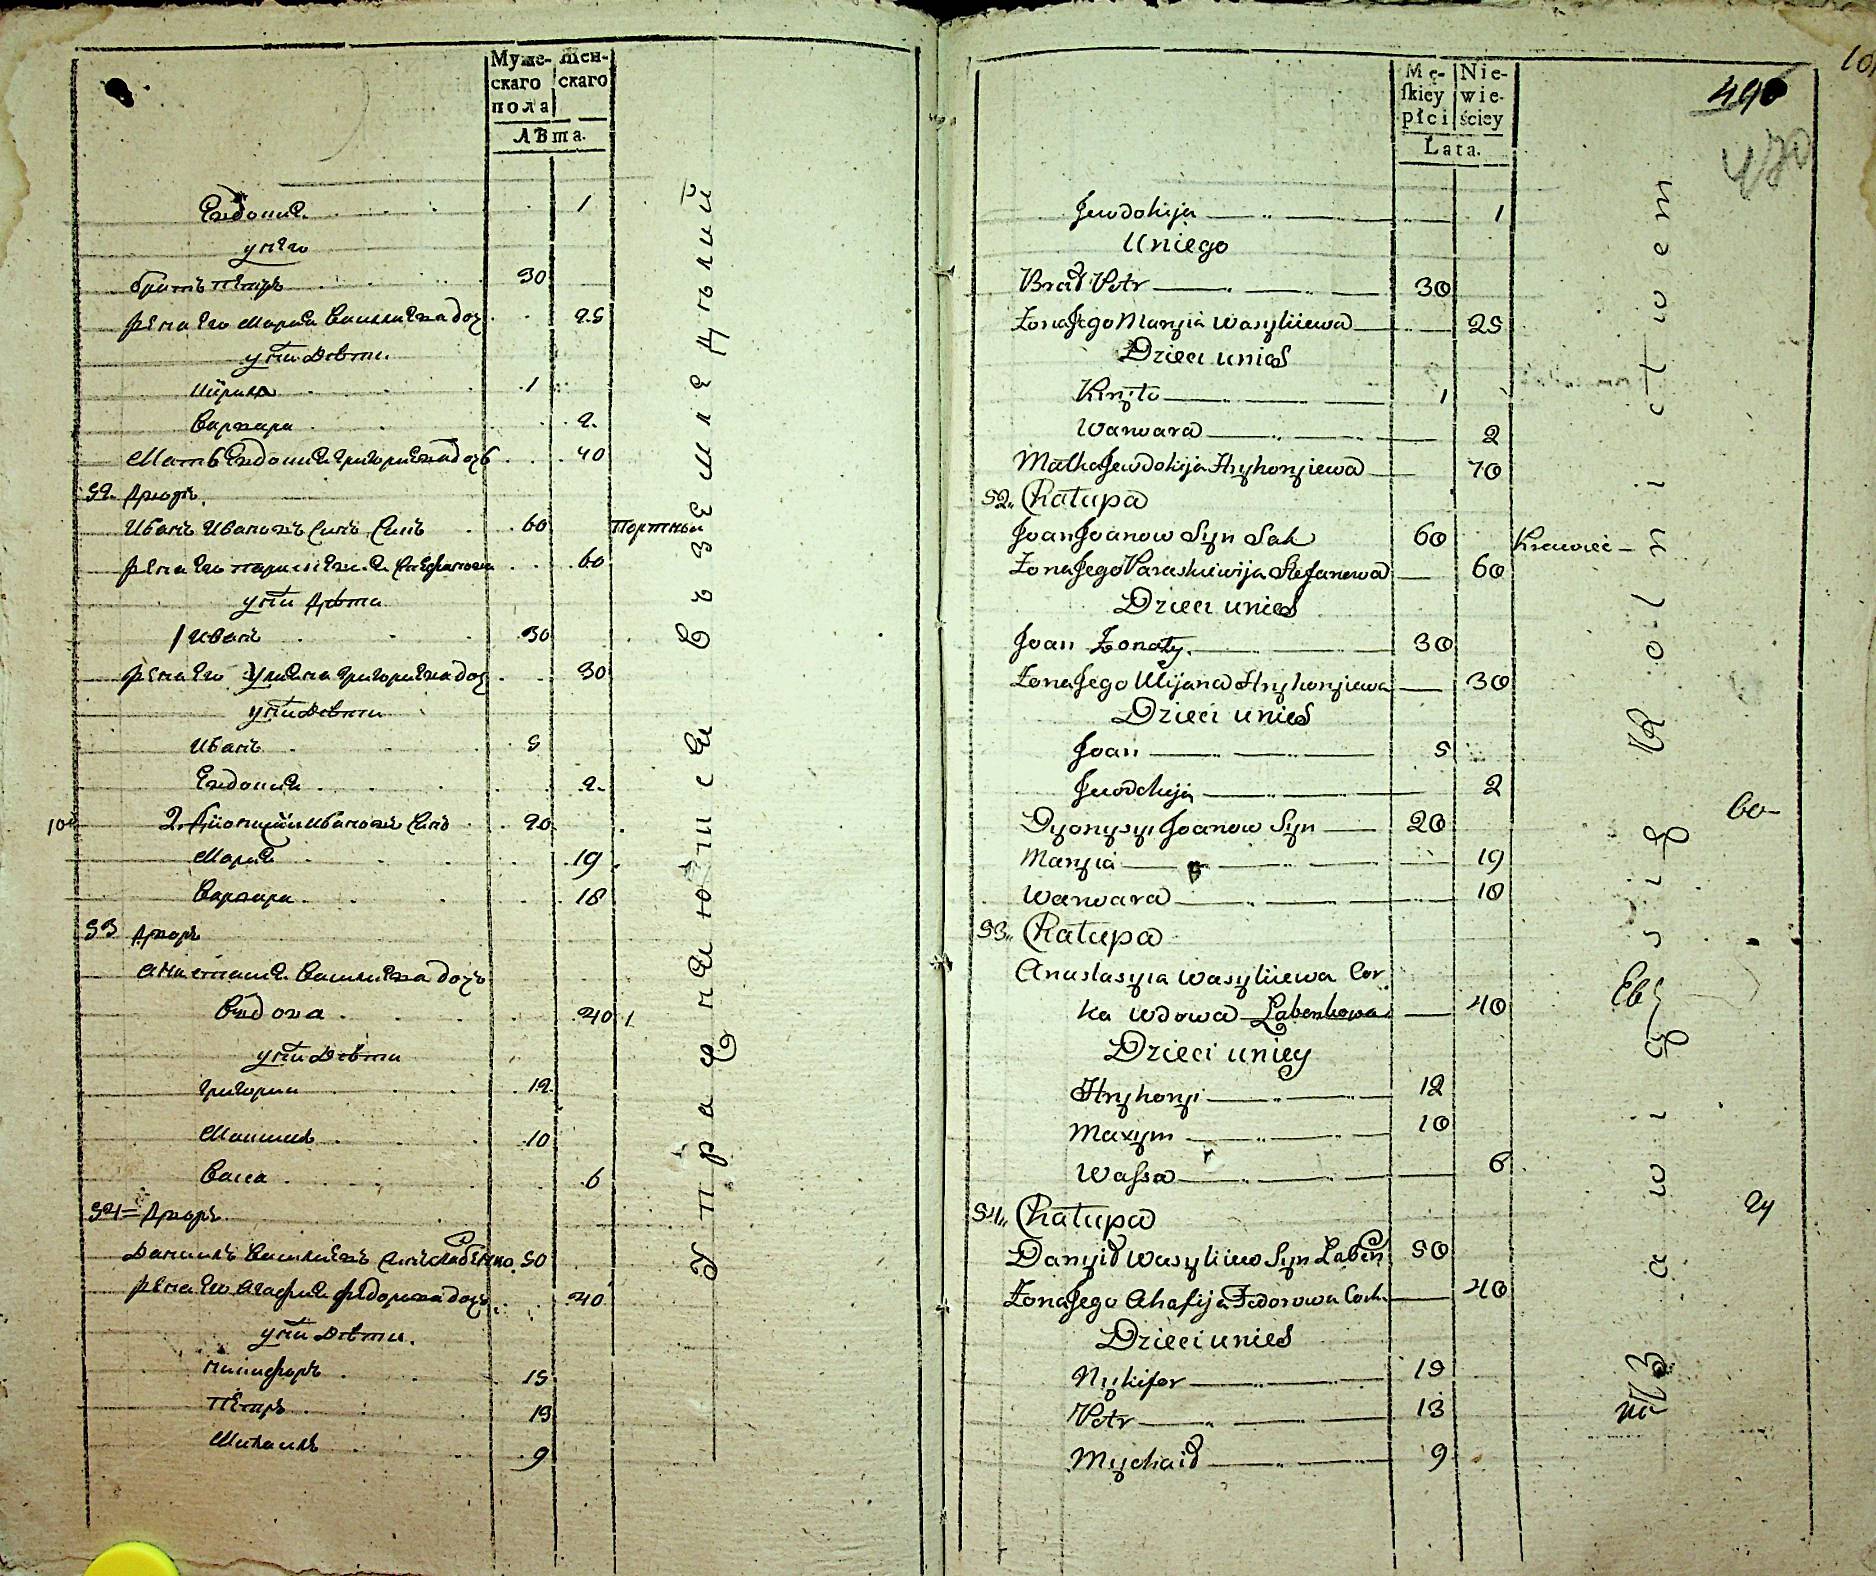 Муже-
скаго
пола
Жен-
скаго
Лѣта.
Евдокия 1
у него
братъ Петръ 30
жена его Мария Василиева доч 25
у ни Дѣти
Кирила 1
Варвара 2
Мать Евдокия Григориева дочь 40
52 Дворъ
Иванъ Ивановъ Синъ Сакъ 60 Портный
жена его Параскевия Стефанова 60
у ни Дѣти
1 Иванъ 30
жена его Улияна Григориева доч 30
у ни Дѣти
Иванъ 5
Евдокия 2
2 Дионисий Ивановъ Синъ 20
Мария 19
Варвара 18
53 Дворъ
Анастасия Василиева дочь
Вдова 40
у ни Дѣти
Григорий 12
Максимъ 10
Васса 6
54 Дворъ
Данилъ Василиевъ Синъ Лабенко 50
жена его Агафия Федорова дочь 40
у ни Дѣти
Никифоръ 15
Петръ 13
Михаилъ 9
Упражняются въ земледѣлии
Mę-
skiey
płci
Nie-
wie-
ściey
Lata.
490
470
Jewdokija 1
U niego
Brat Potr 30
Żona Jego Maryia Wasyliiewa 25
Dzieci u nieś
Kiryło 1
Warwara 2
Matka Jewdokija Hryhoryiewa 70
52 Chałupa
Joan Joanow Syn Sak 60 Krawiec
Żona Jego Paraskiewija Stefanowa 60
Dzieci u nieś
Joan Żonaty 30
Żona Jego Ulijana Hryhoryiewa 30
Dzieci u nieś
Joan 5
Jewdokija 2
Dyonysyi Joanow Syn 20
Maryia 19
Warwara 18
60
53 Chałupa
Anastasyia Wasyliiewa Cor
ka Wdowa Łabenkowa 40
Dzieci u niey
Hryhoryi 12
Maxym 10
Wassa 6
54 Chałupa
Danyił Wasyliiew Syn Łaben 50
Żona Jego Ahafija Fedorowa Cork 40
Dzieci u nieś
Nykifor 15
Potr 13
Mychaił 9
24
Zabawią się Rolnictwem